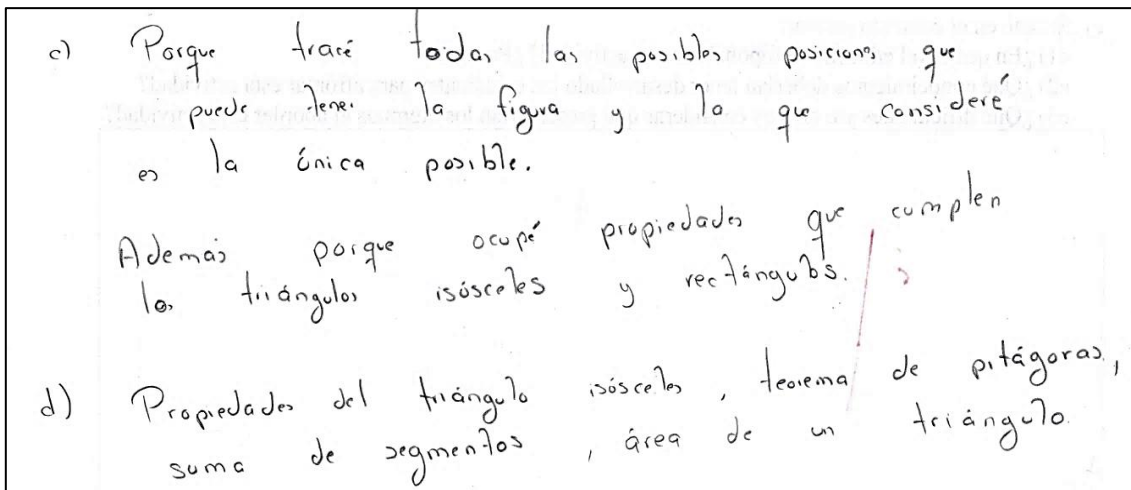 c) Porque tracé todas las posibles posiciones que
puede tener la figura y la que consideré
es la única posible.
Además porque ocupé propiedades que cumplen
los triángulos isósceles y rectángulos.
d) Propiedades del triángulo isósceles, teorema de pitágoras,
suma de segmentos, área de un triángulo.